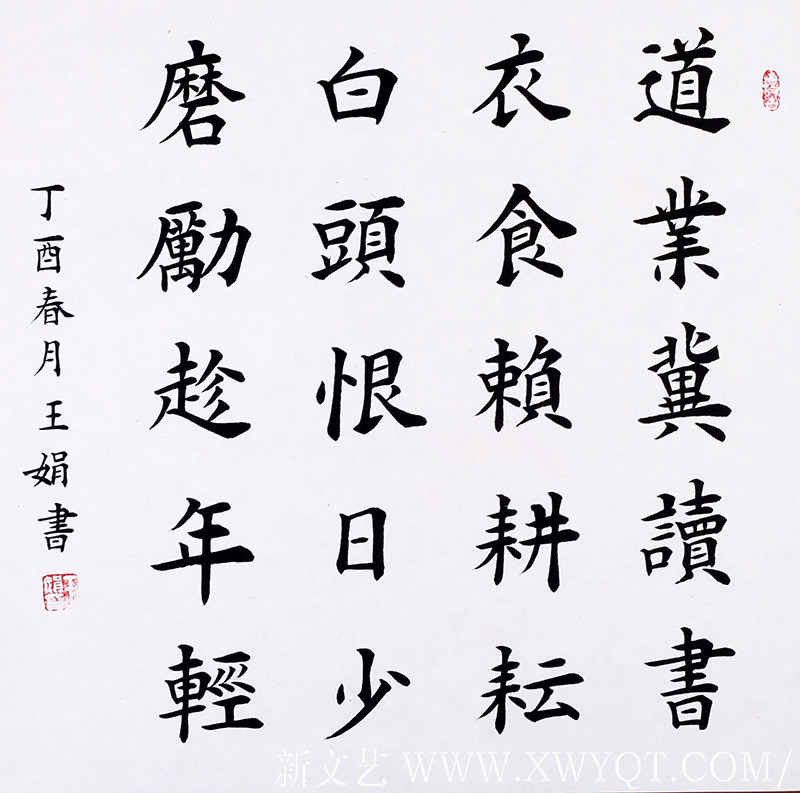 道業冀讀書
衣食賴耕耘
白頭恨日少
磨勵趁年輕
丁酉春月王娟書
新文艺 WWW.XWYQT.COM/